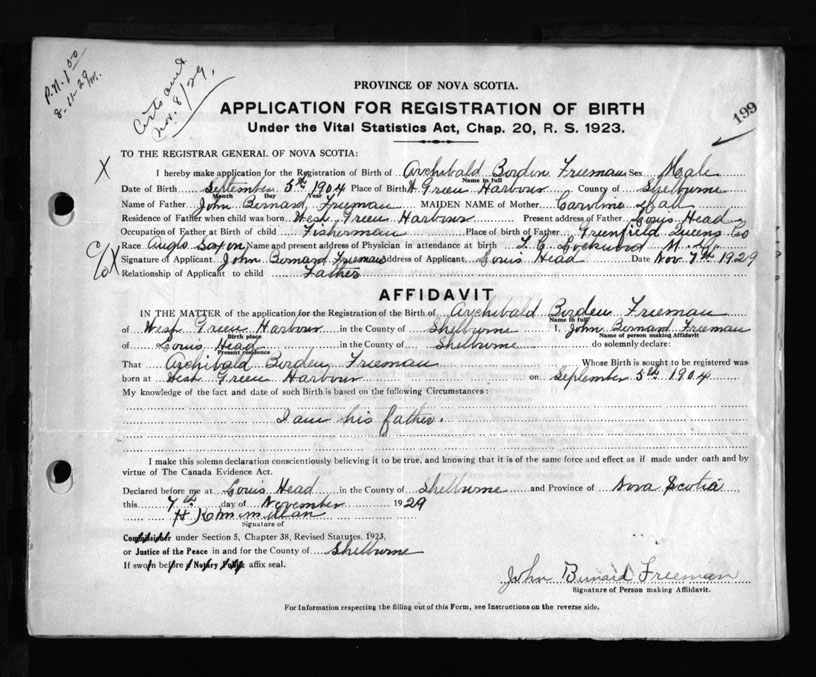 P.N. 1.00
8-11-29 M.
Nov. 8/29,
199
PROVINCE OF NOVA SCOTIA.
APPLICATION FOR REGISTRATION OF BIRTH
Under the Vital Statistics Act, Chap. 20, R. S. 1923.
TO THE REGISTRAR GENERAL OF NOVA SCOTIA:
X I hereby make application for the Registration of Birth of Archibald Borden Freeman Sex Male
Name in full
Date of Birth September 5th 1904 Place of Birth W Green Harbour County of Shelburne
Month Day Year
Name of Father John Bernard Freeman MAIDEN NAME of Mother Caroline
Residence of Father when child was born West Green Harbour Present address of Father Louis Head
Occupation of Father at Birth of child Fisherman Place of birth of Father Greenfield Queens Co
Race Anglo Saxon Name and present address of Physician in attendance at birth Lockwood M.D.
Signature of Applicant John Bernard Freeman Address of Applicant Louis Head Date Nov 7th 1929
Relationship of Applicant to child Father
AFFIDAVIT
IN THE MATTER of the application for the Registration of the Birth of Archibald Borden Freeman
Name in full
of West Green Harbour in the County of Shelburne I, John Bernard Freeman
Birth place Name of person making Affidavit
of Louis Head in the County of Shelburne do solemnly declare:
Present residence
That Archibald Borden Freeman Whose Birth is sought to be registered was
born at West Green Harbour on September 5th 1904
My knowledge of the fact and date of such Birth is based on the following Circumstances:
I am his father.
I make this solemn declaration conscientiously believing it to be true, and knowing that it is of the same force and effect as if made under oath and by
virtue of The Canada Evidence Act.
Declared before me at Louis Head in the County of Shelburne and Province of Nova Scotia
this 7th day of November 1929
H McMillan
Signature of
under Section 5, Chapter 38, Revised Statutes. 1923,
or Justice of the Peace in and for the County of Shelburne
If sworn before a Notary Public affix seal.
John Bernard Freeman
Signature of Person making Affidavit.
For Information respecting the filling out of this Form, see Instructions on the reverse side.